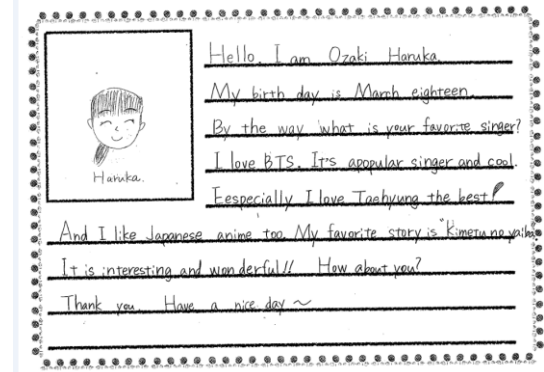 Hello. I am Ozaki Haruka.
My birth day is March eighteen.
By the way what is your favorite singer?
I love BTS. It's apopular singer and cool.
Haruka.
Eespecially I love Taehyung the best!
And I like Japanese anime too. My favorite story is "Kimetu no yaiba.
It is interesting and wonderful!! How about you?
Thank you. Have a nice day ~